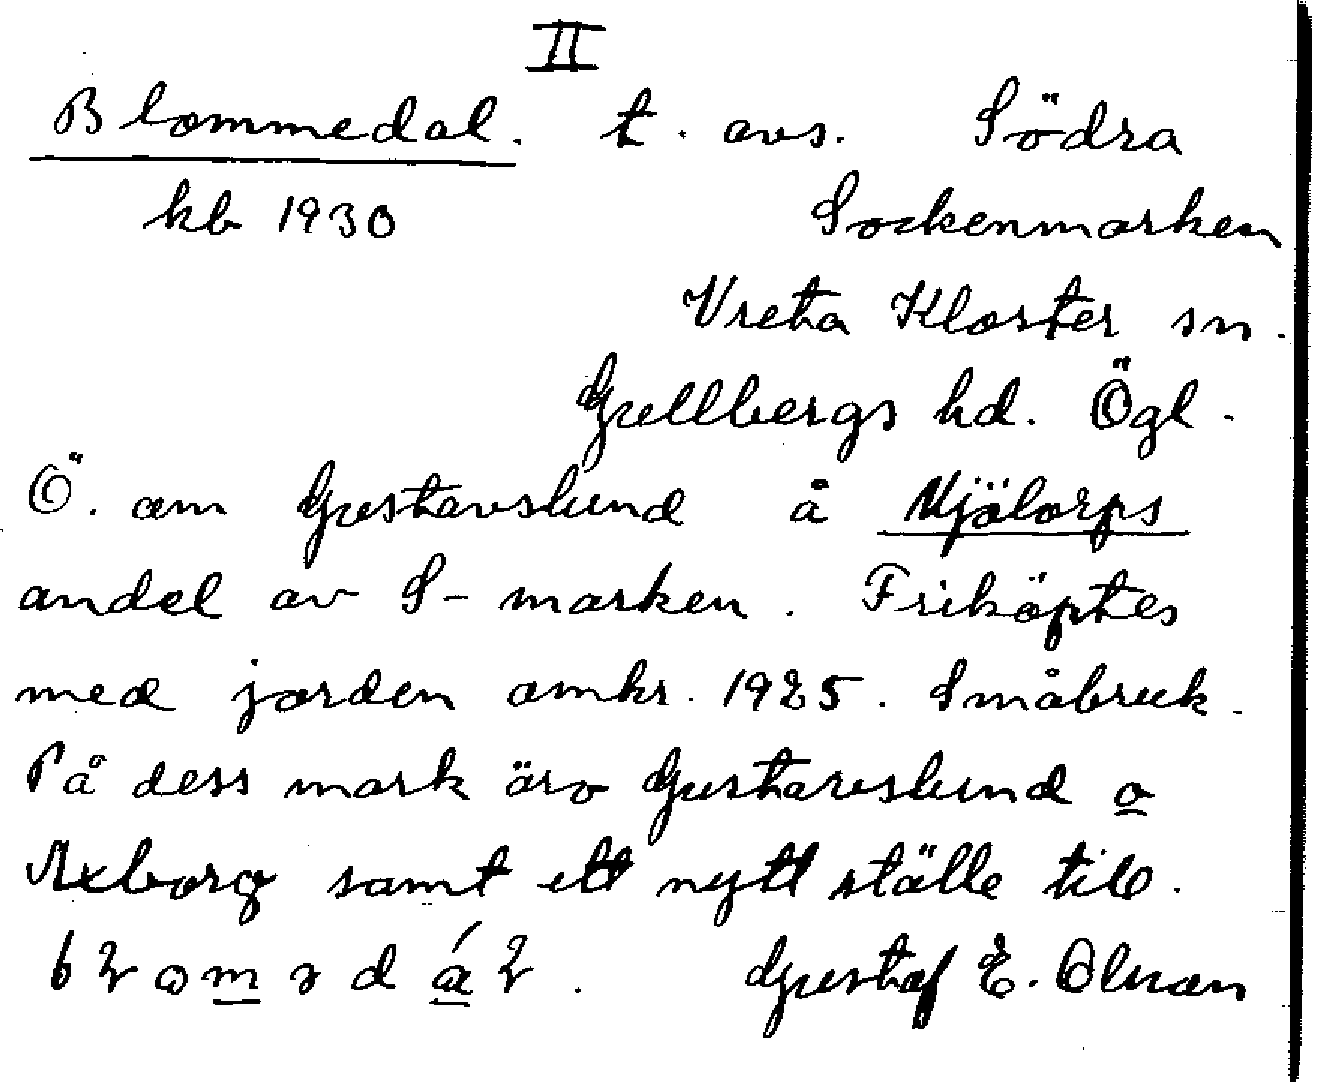 II
Blommedal. t. avs. Södra
kb 1930 Sockenmarken
Vreta Kloster sn.
Gullbergs hd. Ögl.
Ö. om Gustavslund å Mjölorps
andel av S-marken. Friköptes
med jorden omkr. 1925. Småbruk.
På dess mark äro Gustavslund o
Axborg samt ett nytt ställe till.
Gustaf E. Olsson